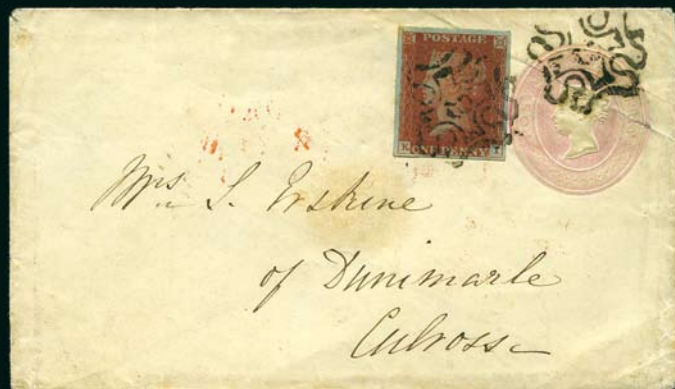 POSTAGE
K ONE PENNY I
Mrs. S. Erskine
of Dunimarle
Culross